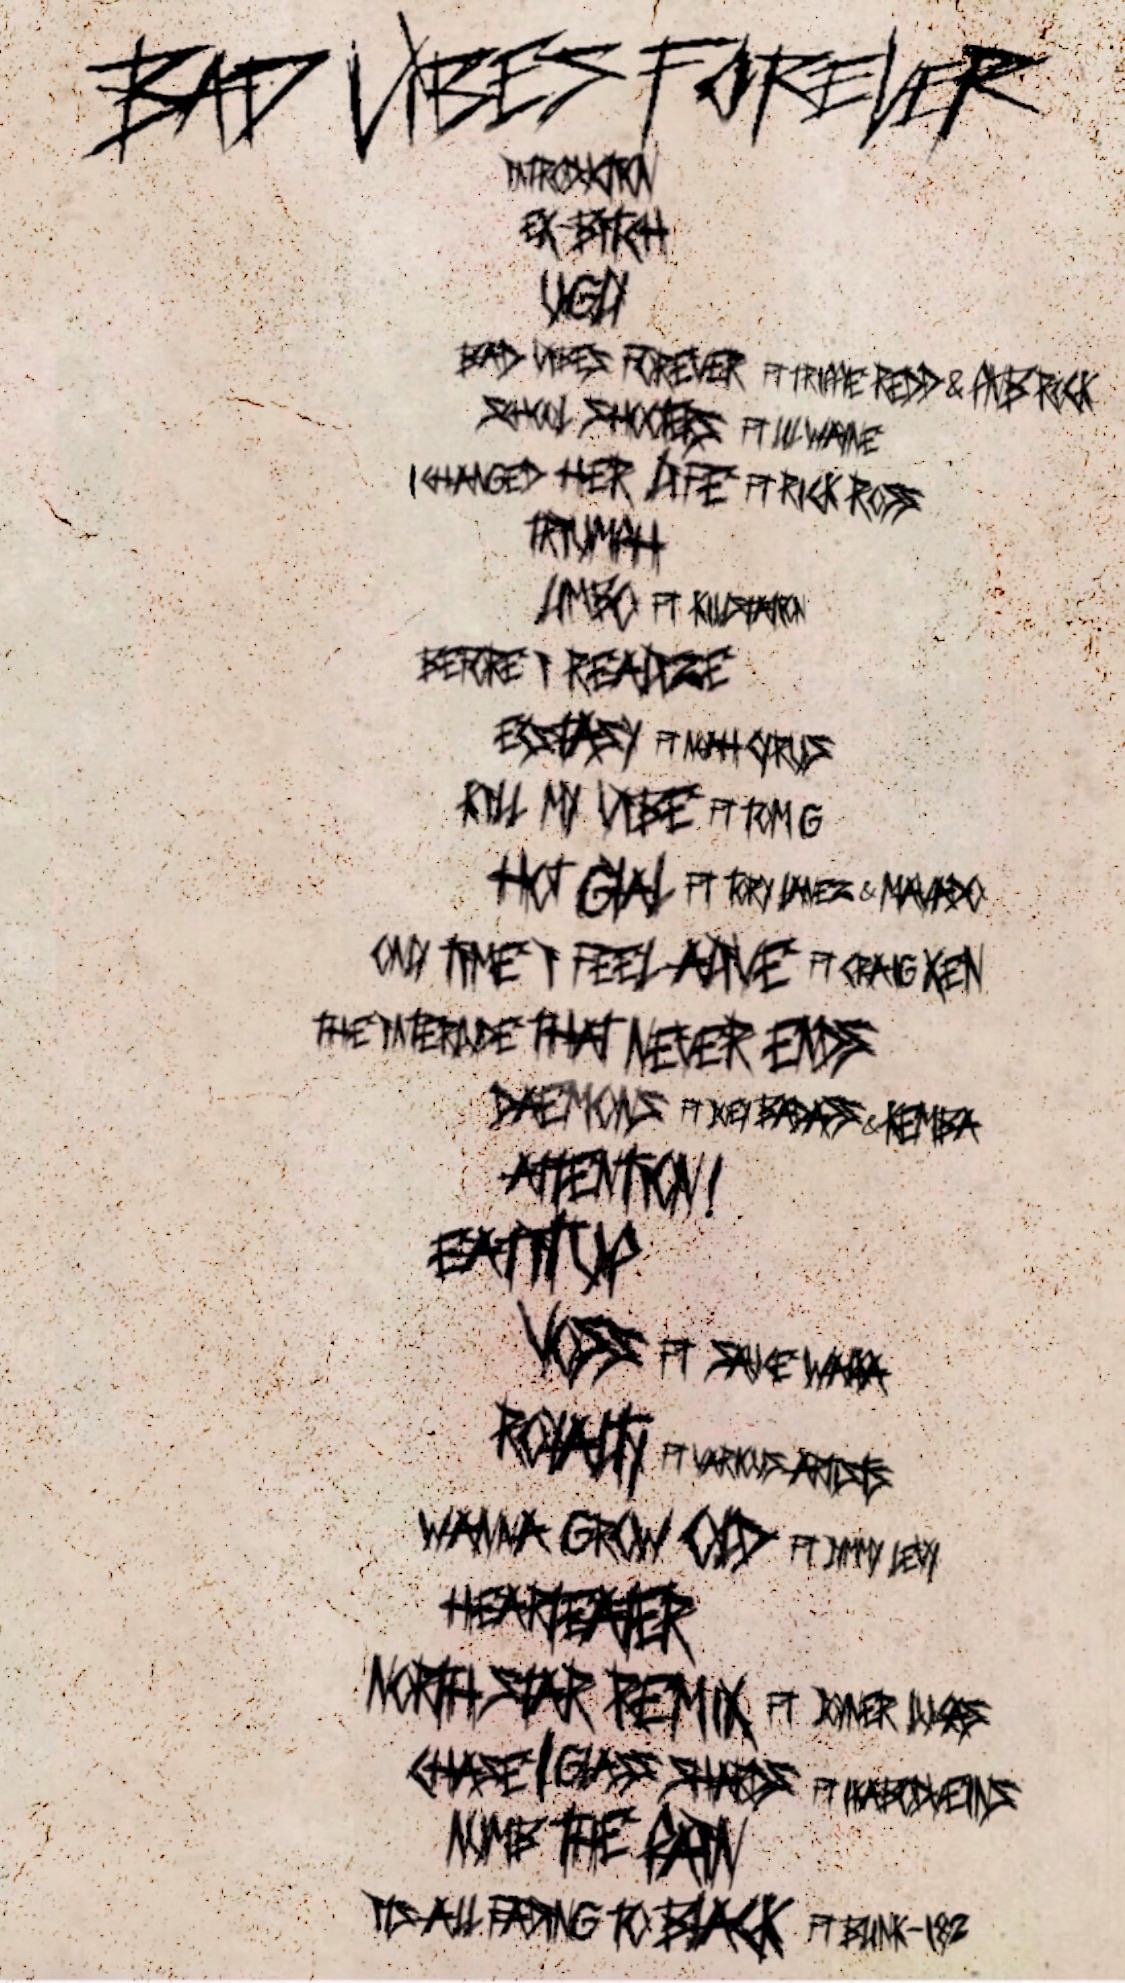 BAD VIBES FOREVER
INTRODUCTION
EX-BITCH
UGLY
BAD VIBES FOREVER FT TRIPPIE REDD & PNB ROCK
SCHOOL SHOOTERS FT LIL WAYNE
I CHANGED HER LIFE FT RICK ROSS
TRIUMPH
LIMBO FT KILLSTATION
BEFORE I REALIZE
ECSTASY FT NOAH CYRUS
KILL MY VIBE FT TOM G
HOT GYAL FT TORY LANEZ & MAVADO
ONLY TIME I FEEL ALIVE FT CRAIG XEN
THE INTERLUDE THAT NEVER ENDS
DAEMONS FT JOEY BADASS & KEMBA
ATTENTION!
EATITUP
VOSS FT SAUCE WALKA
ROYALTY FT VARIOUS ARTISTS
WANNA GROW OLD FT JIMMY LEVY
HEARTEATER
NORTH STAR REMIX FT JOYNER LUCAS
CHASE / GLASS SHARDS FT IKABODVEINS
NUMB THE PAIN
ITS ALL FADING TO BLACK FT BLINK-182